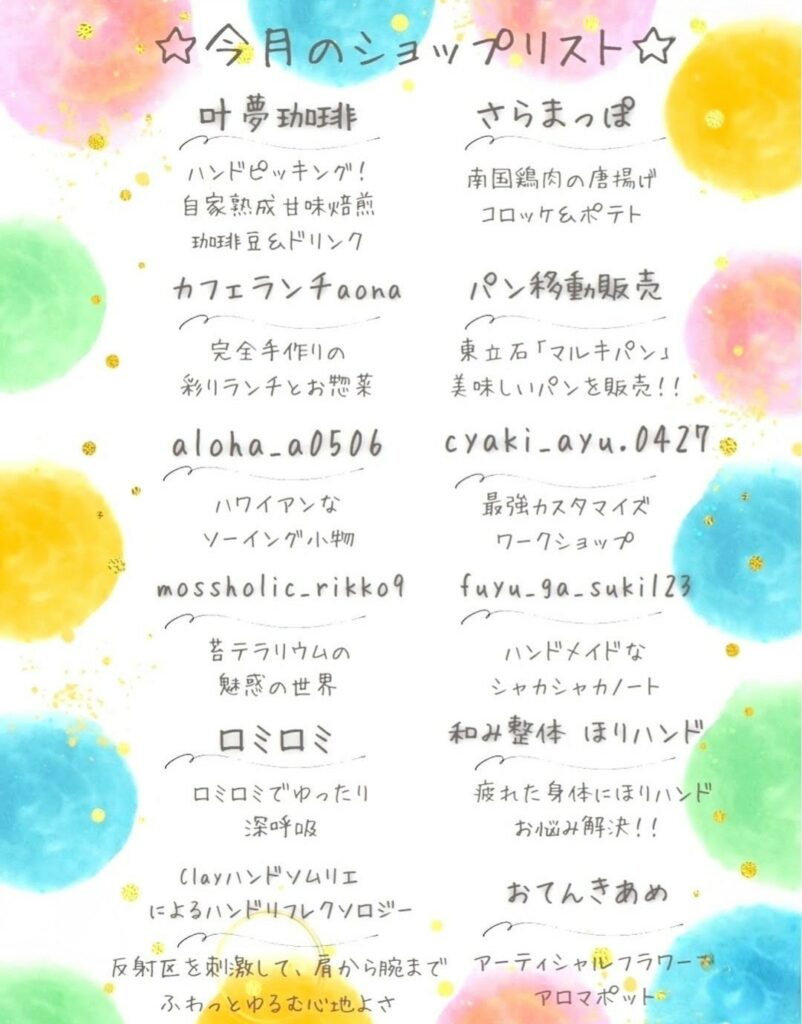 ☆今月のショップリスト☆
叶夢珈琲
ハンドピッキング!
自家熟成甘味焙煎
珈琲豆&ドリンク
さらまっぽ
南国鶏肉の唐揚げ
コロッケ&ポテト
カフェランチaona
完全手作りの
彩りランチとお惣菜
パン移動販売
東立石「マルキパン」
美味しいパンを販売!!
aloha_a0506
ハワイアンな
ソーイング小物
cyaki_ayu.0427
最強カスタマイズ
ワークショップ
mossholic_rikko9
苔テラリウムの
魅惑の世界
fuyu_ga_suki123
ハンドメイドな
シャカシャカノート
ロミロミ
ロミロミでゆったり
深呼吸
和み整体 ほりハンド
疲れた身体にほりハンド
お悩み解決!!
Clayハンドソムリエ
によるハンドリフレクソロジー
反射区を刺激して、肩から腕まで
ふわっとゆるむ心地よさ
おてんきあめ
アーティシャルフラワーで
アロマポット